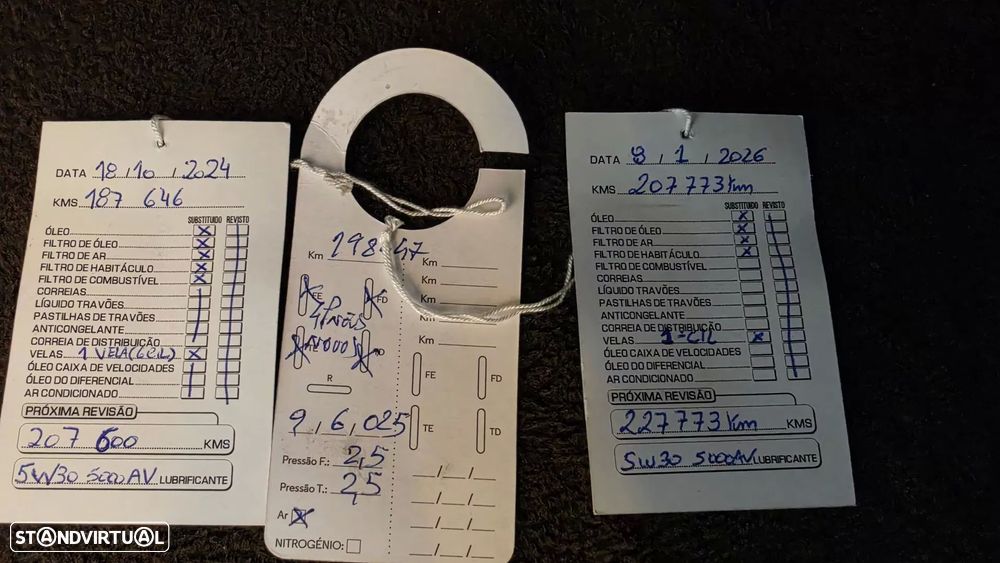 DATA 18 / 10 / 2024
KMS 187 646
SUBSTITUIDO REVISTO
ÓLEO
FILTRO DE ÓLEO
FILTRO DE AR
FILTRO DE HABITÁCULO
FILTRO DE COMBUSTÍVEL
CORREIAS
LÍQUIDO TRAVÕES
PASTILHAS DE TRAVÕES
ANTICONGELANTE
CORREIA DE DISTRIBUIÇÃO
VELAS 1 VELA (6 CIL)
ÓLEO CAIXA DE VELOCIDADES
ÓLEO DO DIFERENCIAL
AR CONDICIONADO
PRÓXIMA REVISÃO
207 600 KMS
5W30 5000AV LUBRIFICANTE
Km 198 47 Km
Km
FE FD Km
Km
Km
R
FE FD
9 / 6 / 025 TE TD
Pressão F.: 2,5
Pressão T.: 2,5
Ar X
NITROGÉNIO:
DATA 8 / 1 / 2026
KMS 207 773 Km
SUBSTITUIDO REVISTO
ÓLEO
FILTRO DE ÓLEO
FILTRO DE AR
FILTRO DE HABITÁCULO
FILTRO DE COMBUSTÍVEL
CORREIAS
LÍQUIDO TRAVÕES
PASTILHAS DE TRAVÕES
ANTICONGELANTE
CORREIA DE DISTRIBUIÇÃO
VELAS 1-CIL
ÓLEO CAIXA DE VELOCIDADES
ÓLEO DO DIFERENCIAL
AR CONDICIONADO
PRÓXIMA REVISÃO
227773 Km KMS
5W30 5000AV LUBRIFICANTE
STANDVIRTUAL